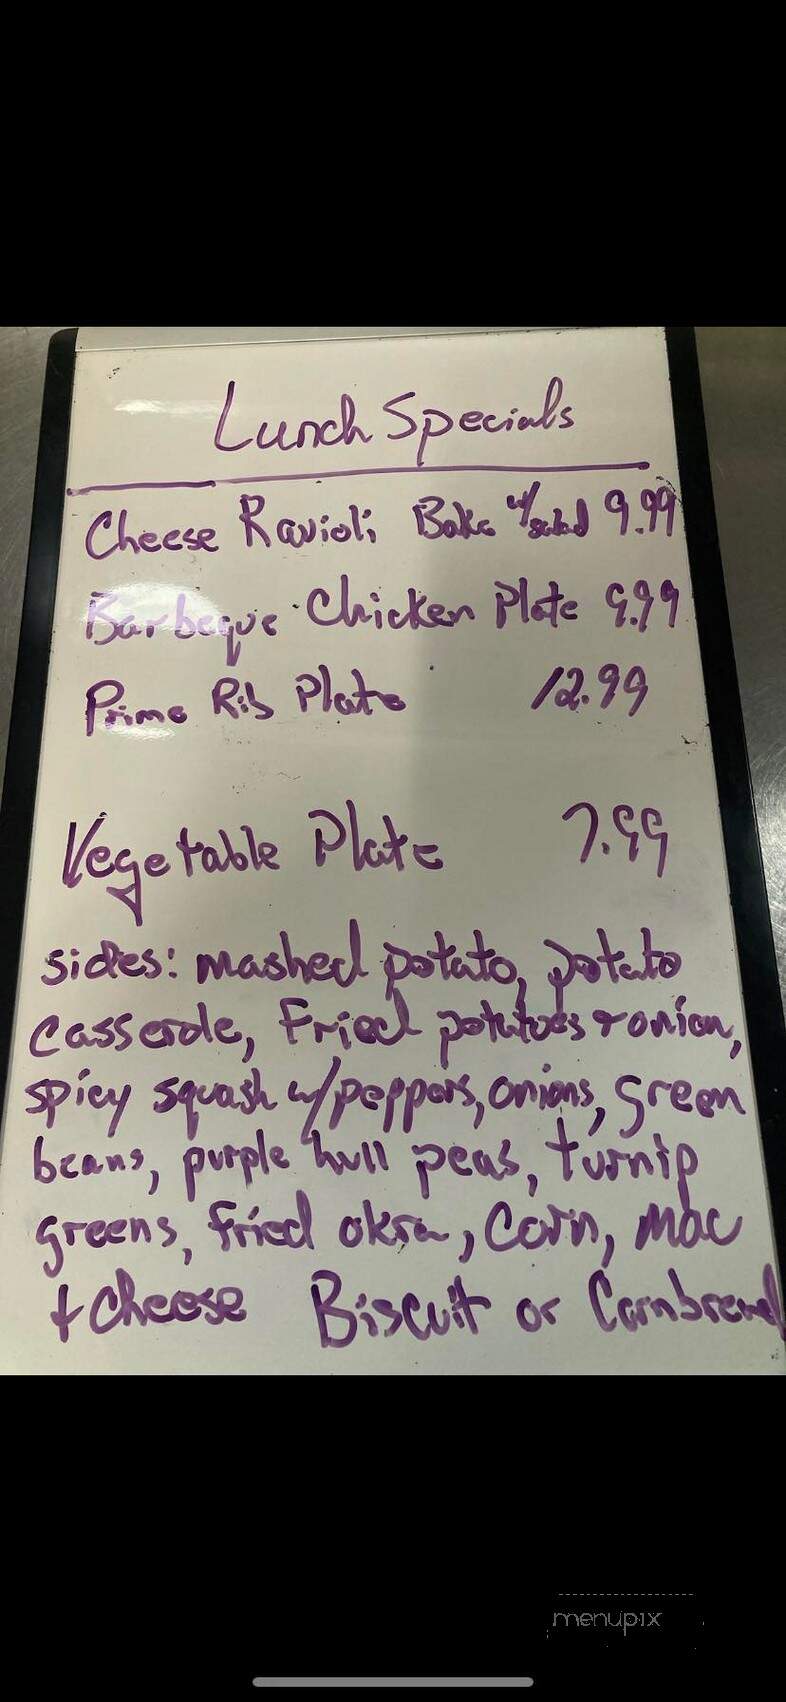 Lunch Specials
Cheese Ravioli Bake w/salad 9.99
Barbeque Chicken Plate 9.99
Prime Rib Plate 12.99
Vegetable Plate 7.99
sides: mashed potato, potato
casserole, Fried potatoes + onion,
spicy squash w/peppers, onions, green
beans, purple hull peas, turnip
greens, fried okra, Corn, Mac
+ Cheese Biscuit or Cornbread
menupix